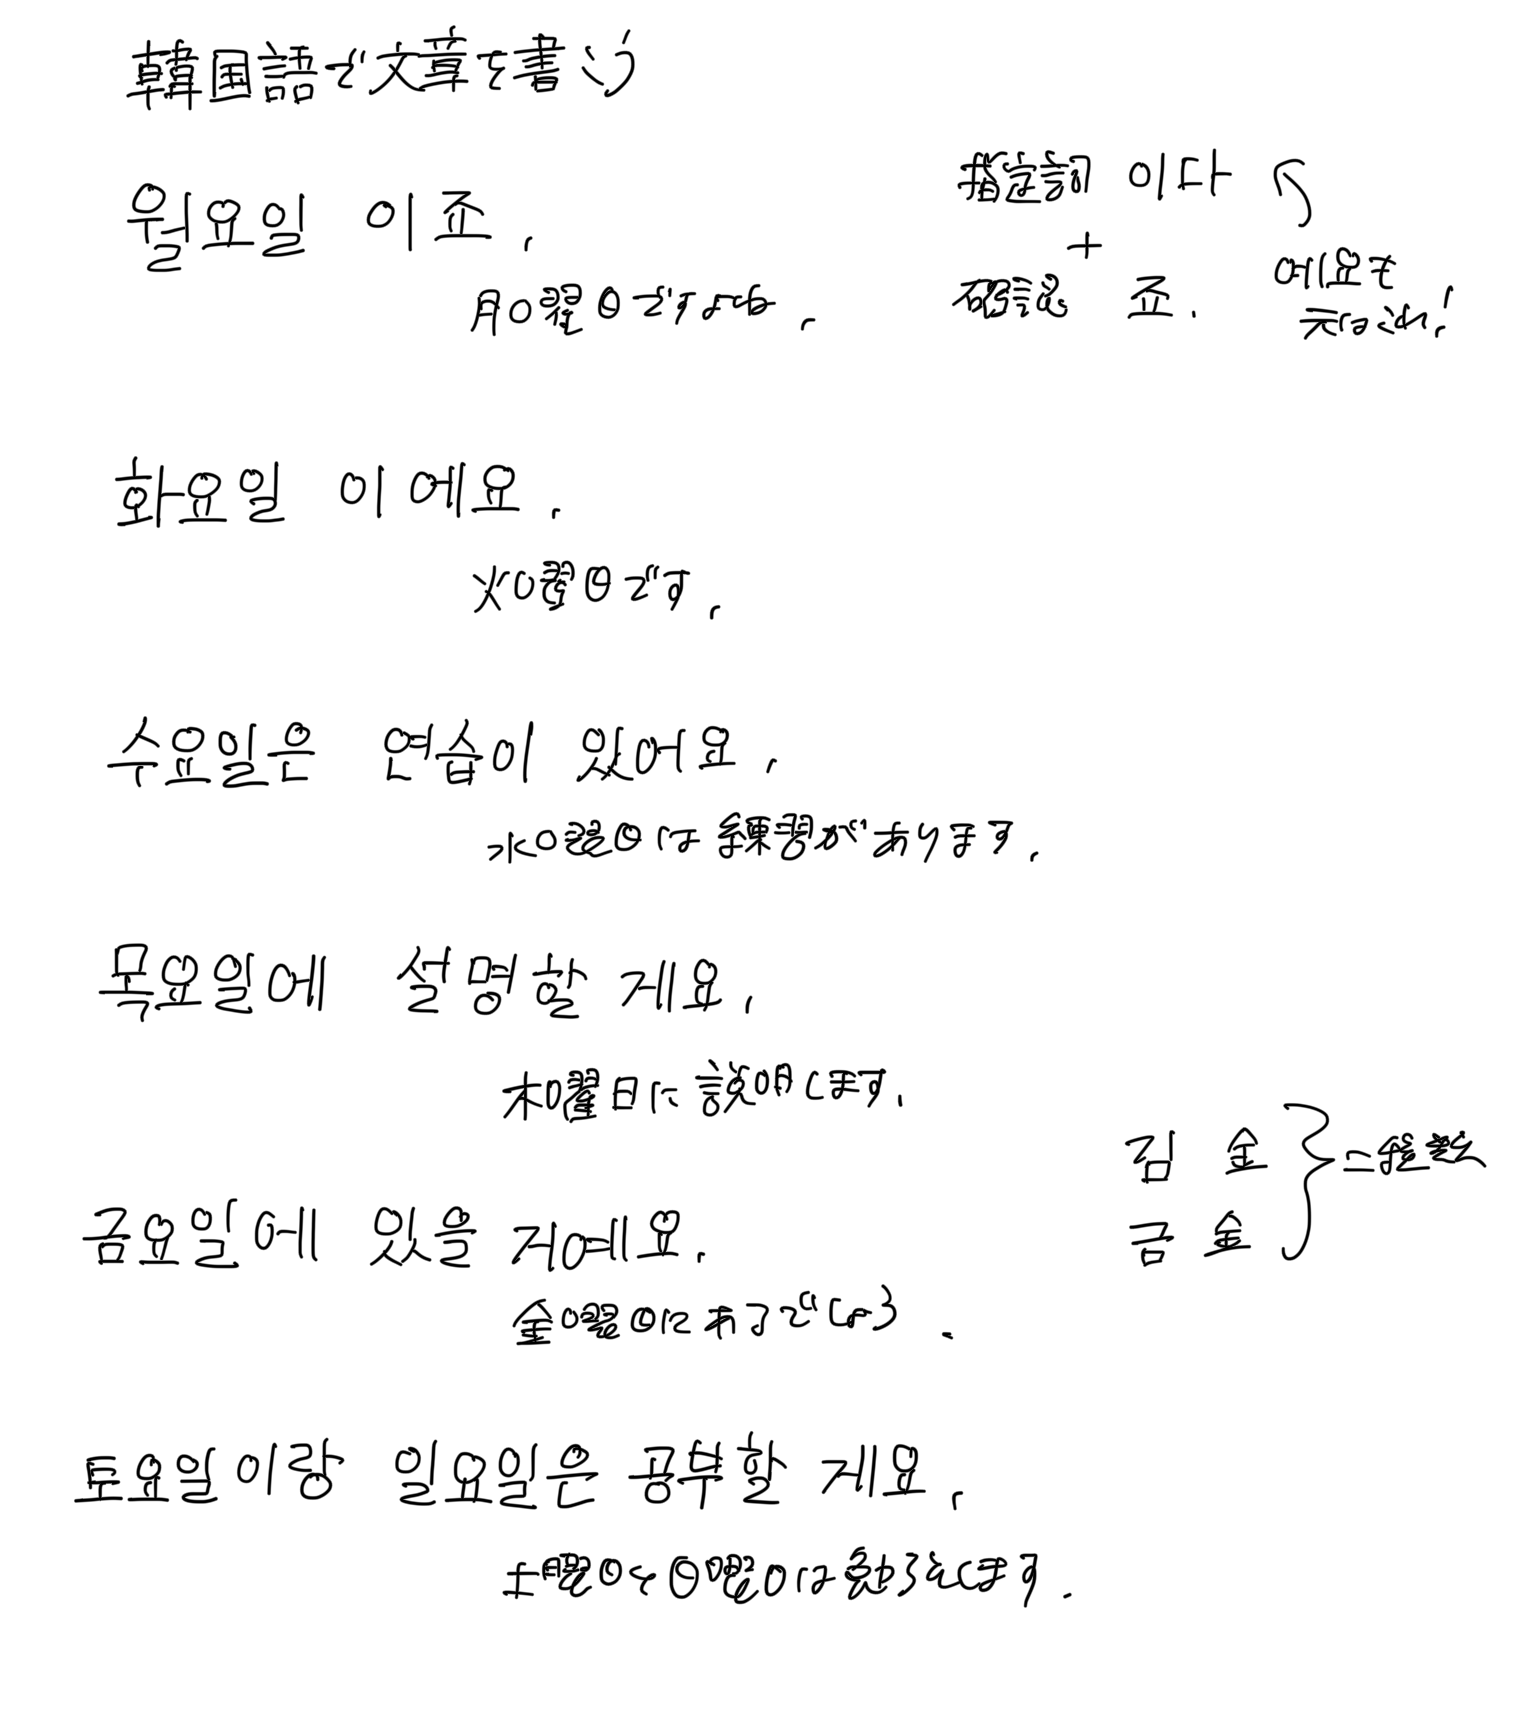 韓国語で文章を書こう
월요일 이죠.
月曜日ですよね.
指定詞 이다
+
確認 죠.
에요も
元はこれ!
화요일 이에요.
火曜日です.
수요일은 연습이 있어요.
水曜日は練習があります.
목요일에 설명할 게요.
木曜日に説明します.
김 金
금 金
=種類
금요일에 있을 거예요.
金曜日にあるでしょう.
토요일이랑 일요일은 공부할 게요.
土曜日と日曜日は勉強します.